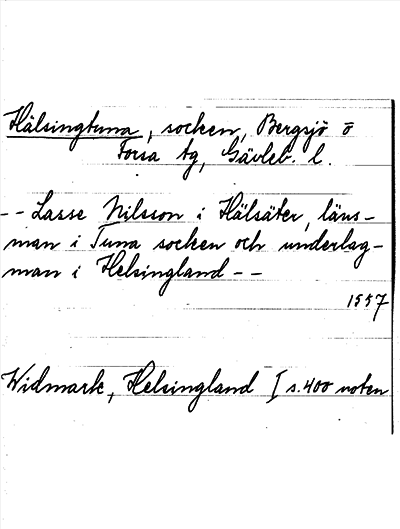 Hälsingtuna, socken, Bergsjö o
Forsa tg, Gävleb. l.
-- Lasse Nilsson i Hälsäter, läns-
man i Tuna socken och underlag-
man i Helsingland --
1557
Widmark, Helsingland I s. 400 noten